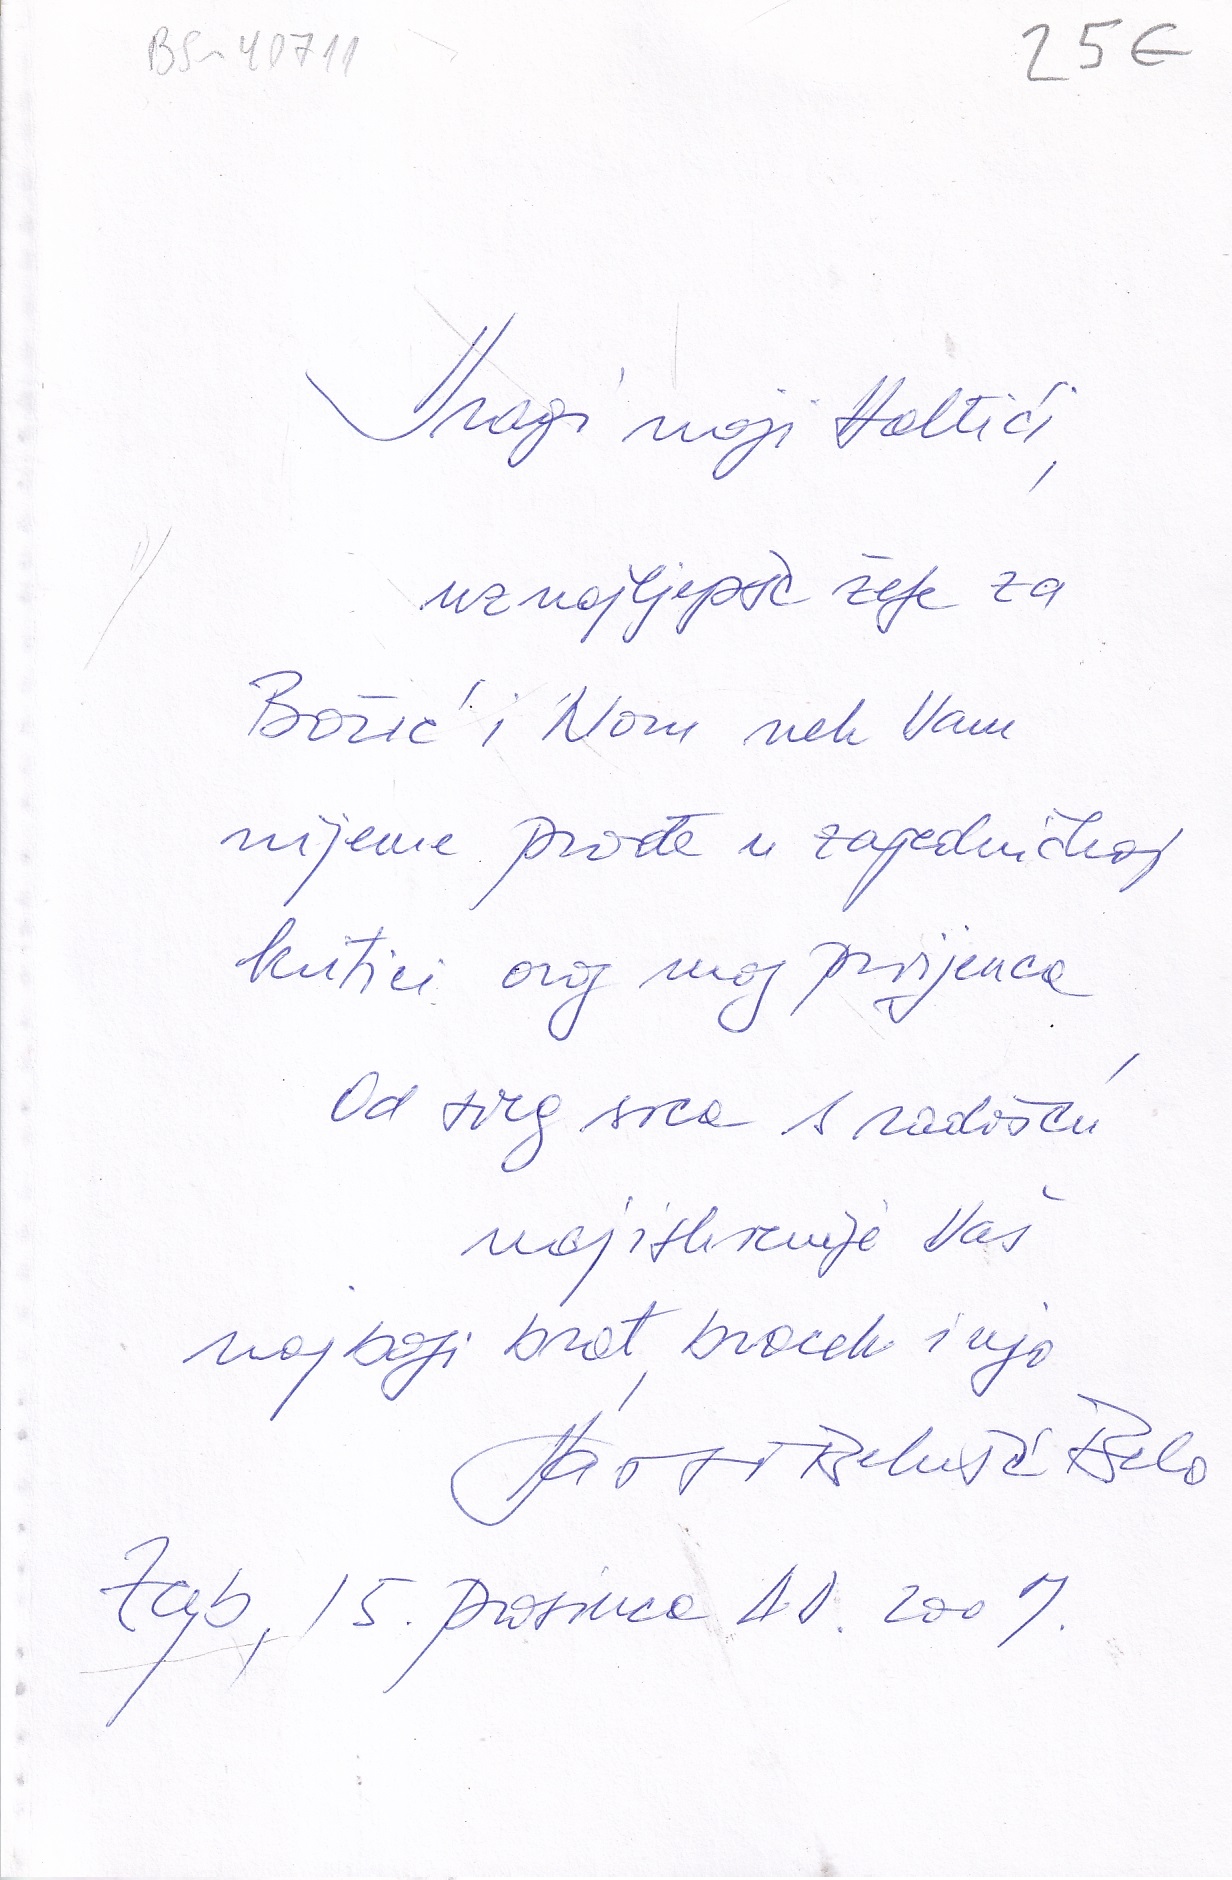 BS-40711
25€
Dragi moji
uz najljepše želje za
Božić i Novu nek Vam
vrijeme prođe u zajedničkoj
kutici ovog mog prvijenca
Od sveg srca s radošću
najiskrenije Vaš
najbolji brat, bracek i ujo
Belušić Belo
Zgb, 15. prosinca AD. 2007.